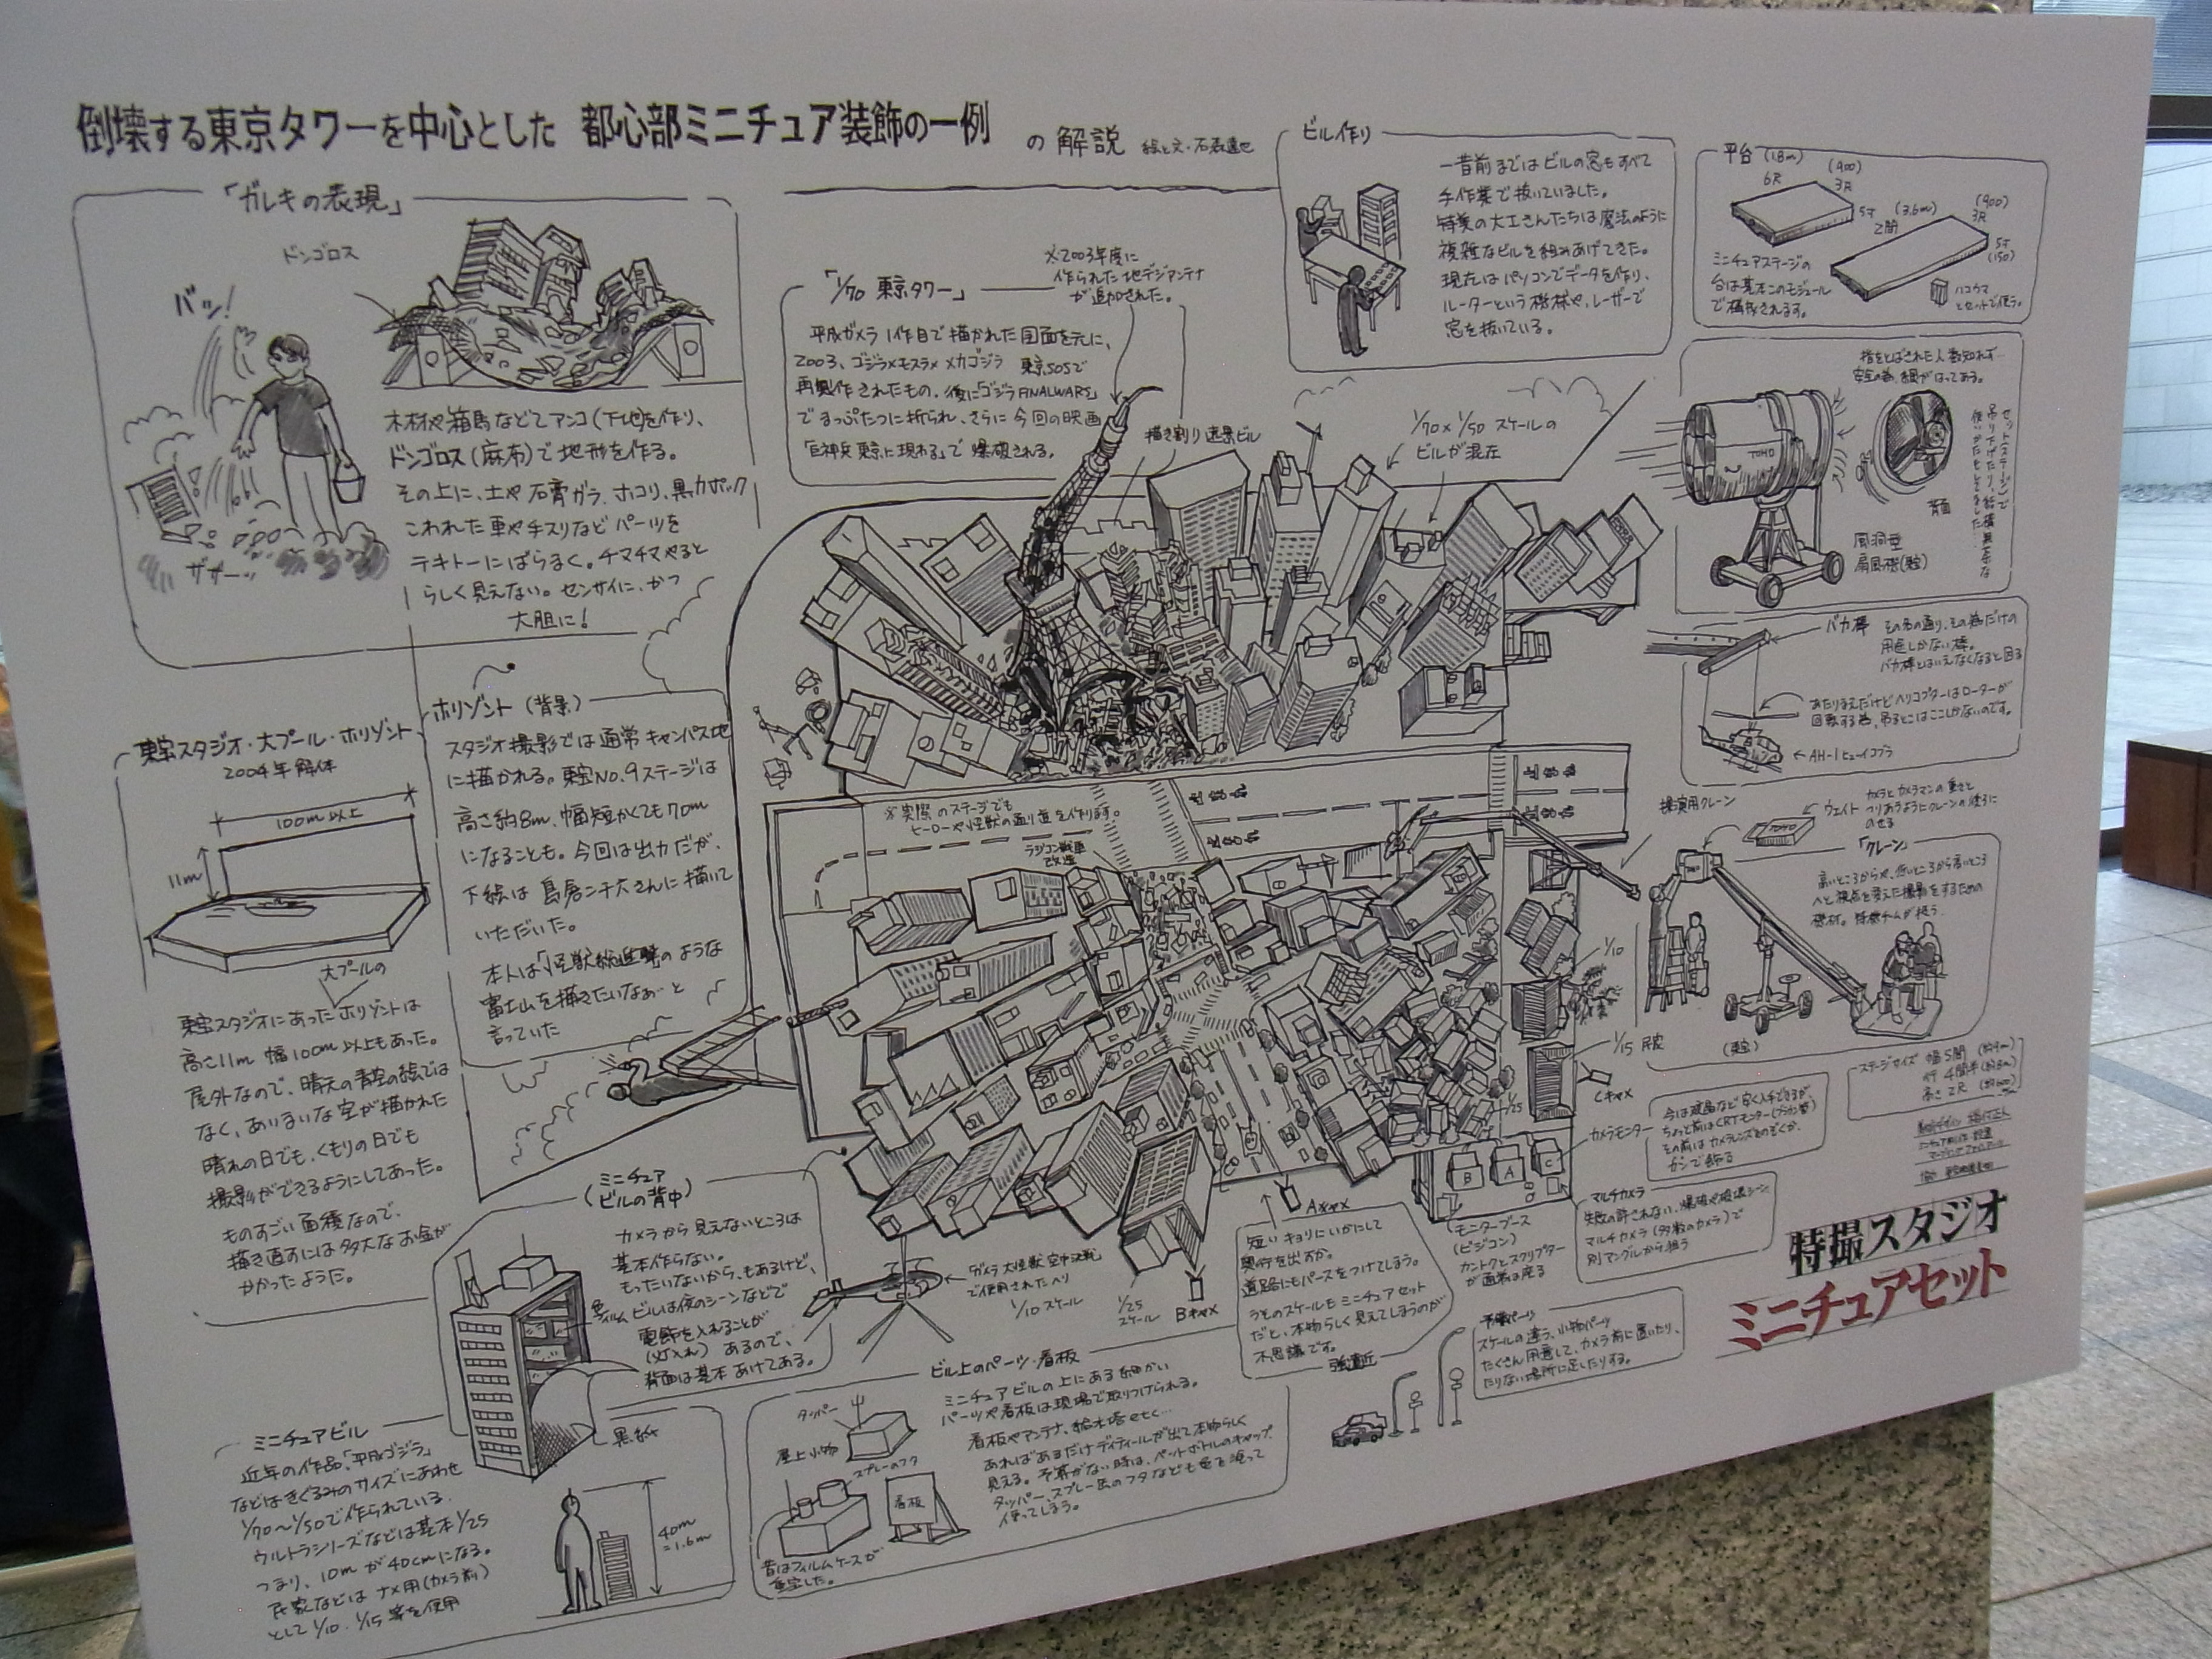 倒壊する東京タワーを中心とした 都心部ミニチュア装飾の一例 の解説
「ガレキの表現」
ドンゴロス
バッ!
ザザーッ
木材や箱馬などでアンコ(下地)を作り、
ドンゴロス(麻布)で地形を作る。
その上に、土や石膏ガラ、ホコリ、黒カポック
こわれた車や手スリなどパーツを
テキトーにばらまく。チマチマやると
らしく見えない。センサイに、かつ
大胆に!
「1/70 東京タワー」
※2003年度に
作られた地デジアンテナ
が追加された。
平成ガメラ1作目で描かれた図面を元に、
2003、ゴジラ×モスラ×メカゴジラ 東京SOSで
再製作されたもの。後に「ゴジラFINALWARS」
でまっぷたつに折られ、さらに今回の映画
「巨神兵東京に現わる」で爆破される。
描き割り遠景ビル
1/70と1/50スケールの
ビルが混在
ビル作り
一昔前まではビルの窓もすべて
手作業で抜いていました。
特美の大工さんたちは魔法のように
複雑なビルを組みあげてきた。
現在はパソコンでデータを作り、
ルーターという機械や、レーザーで
窓を抜いている。
平台 (1.8m) (900)
6尺 3尺
5寸 (3.6m) (900)
2間 3尺
5寸
(150)
ミニチュアステージの
台は基本このモジュール
で構成されます。
ハコウマ
とセットで使う。
指をとばされた人数知れず…
安全の為、網がはってある。
TOHO
背面
風洞型
扇風機(東宝)
バカ棒 その名の通り、その為だけの
用途しかない棒。
バカ棒とはいえなくなると困る
あたりまえだけどヘリコプターはローターが
回転する為、吊るとこはここしかないのです。
←AH-1ヒューイコブラ
東宝スタジオ・大プール・ホリゾント
2004年解体
100m以上
11m
大プールの
東宝スタジオにあったホリゾントは
高さ11m 幅100m以上もあった。
屋外なので、晴天の青空の絵では
なく、あいまいな空が描かれた
晴れの日でも、くもりの日でも
撮影ができるようにしてあった。
ものすごい面積なので、
描き直すには多大なお金が
かかったようだ。
ホリゾント(背景)
スタジオ撮影では通常キャンバス地
に描かれる。東宝NO.9ステージは
高さ約8m、幅短かくても70m
になることも。今回は出力だが、
下絵は島倉二千六さんに描いて
いただいた。
本人は「怪獣総進撃」のような
富士山を描きたいなあ…と
言っていた
※実際のステージでも
ヒーローや怪獣の通り道を作ります。
ラジコン戦車
改造
操演用クレーン
ウェイト カメラとカメラマンの重さと
つりあうようにクレーンの後ろに
のせる
「クレーン」
高いところからや、低いところから高いところ
へと視点を変えた撮影をするための
機材。特機チームが扱う
(東宝)
1/10
1/15 民家
1/25
Cキャメ
カメラモニター
B A C
ステージサイズ 幅5間(約9m)
行 4間半(約8m)
高さ 2尺(約600)
今は液晶など安く入手できるが、
ちょっと前はCRTモニター(ブラウン管)
その前はカメラレンズをのぞくか、
カンで飾る
(ミニチュア
ビルの背中)
カメラから見えないところは
基本作らない。
もったいないから、もあるけど、
ビルは夜のシーンなどで
電飾を入れることが
(灯入れ) あるので、
背面は基本あけてある。
黒紙
ガメラ大怪獣空中決戦
で使用されたヘリ
1/10スケール
1/25
スケール
Bキャメ
Aキャメ
短いキョリでいかにして
奥行を出すか。
道路にもパースをつけてしまう。
うそのスケールもミニチュアセット
だと、本物らしく見えてしまうのが
不思議です。
強遠近
モニターブース
(ビジコン)
カントクとスクリプター
が画面に座る
マルチカメラ
失敗の許されない、爆破や破壊シーン
マルチカメラ(多数のカメラ)で
別アングルから狙う
予備パーツ
スケールの違う、小物パーツ
たくさん用意して、カメラ前に置いたり、
たりない場所に足したりする。
特撮スタジオ
ミニチュアセット
ミニチュアビル
近年の作品、「平成ゴジラ」
などはきぐるみのサイズにあわせ
1/70〜1/50で作られている。
ウルトラシリーズなどは基本1/25
つまり、10mが40cmになる。
民家などはナメ用(カメラ前)
として1/10、1/15等を使用
40m
=1.6m
ビル上のパーツ・看板
タッパー
屋上小物
スプレーのフタ
看板
昔はフィルムケースが
重宝した。
ミニチュアビルの上にある細かい
パーツや看板は現場で取りつけられる。
看板やアンテナ、給水塔etc…
あればあるだけディティールが出て本物らしく
見える。予算がない時は、ペットボトルのキャップ、
タッパー、スプレー缶のフタなども色を塗って
使ってしまう。